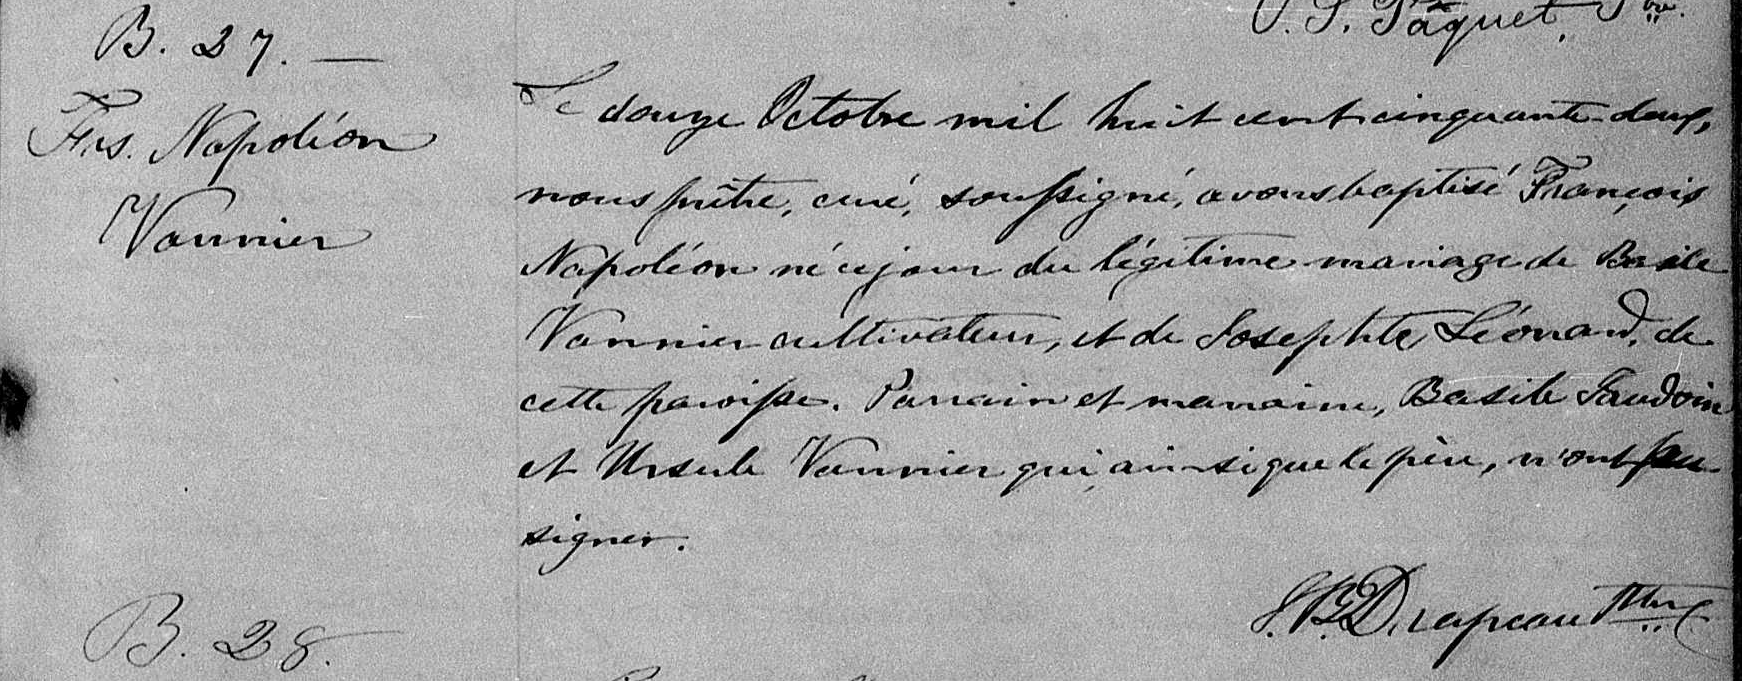 P. S. Pâquet, Ptre.
B. 27. —
Frs. Napoléon
Vannier
Le douze Octobre mil huit cent cinquante-deux,
nous prêtre, curé, soussigné, avons baptisé François
Napoléon né ce jour du légitime mariage de Basile
Vannier cultivateur, et de Josephte Léonard, de
cette paroisse. Parrain et marraine, Basile Jaudoin
et Ursule Vannier qui, ainsi que le père, n'ont su
signer.
J. B. Drapeau Ptre
B. 28.